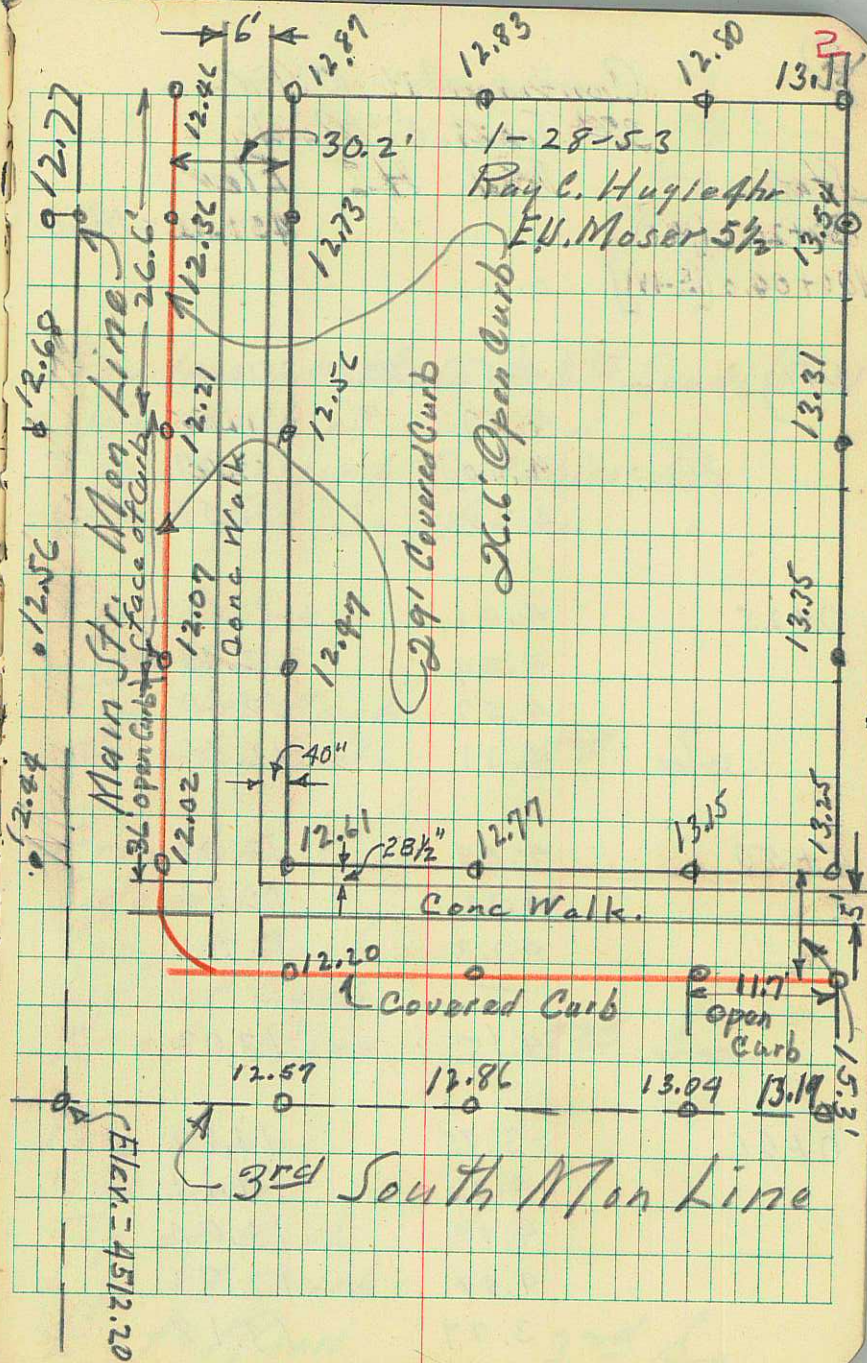 2
6'
12.87
12.83
12.80
13.11
12.46
30.2'
1-28-53
Ray C. Hugie 4hr
E.U. Moser 5½
12.77
12.36
12.73
13.54
26.6'
12.68
12.21
12.56
13.31
Main Str. Mon Line
Face of Curb
Conc Walk
29' Covered Curb
26.6' Open Curb
12.56
12.07
12.47
13.35
12.44
36' Open Curb
12.02
40"
12.61
28½"
12.77
13.15
13.25
Conc Walk.
5'
12.20
Covered Curb
11.7'
Open
Curb
15.3'
12.57
12.86
13.04
13.19
3rd South Mon Line
Elev. = 4512.20